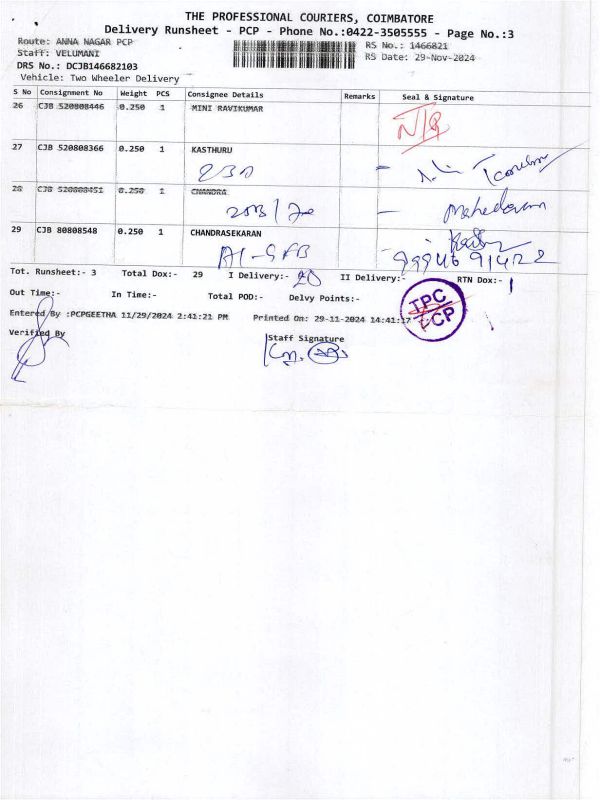 THE PROFESSIONAL COURIERS, COIMBATORE
Delivery Runsheet - PCP - Phone No.:0422-3505555 - Page No.:3
Route: ANNA NAGAR PCP RS No.: 1466821
Staff: VELUMANI RS Date: 29-Nov-2024
DRS No.: DCJB146682103
Vehicle: Two Wheeler Delivery
S No Consignment No Weight PCS Consignee Details Remarks Seal & Signature
26 CJB 520808446 0.250 1 MINI RAVIKUMAR
N/R
27 CJB 520808366 0.250 1 KASTHURU
28 CJB 520808451 0.250 1 CHANDRA
29 CJB 80808548 0.250 1 CHANDRASEKARAN
Tot. Runsheet:- 3 Total Dox:- 29 I Delivery:- 20 II Delivery:- RTN Dox:- 1
Out Time:- In Time:- Total POD:- Delvy Points:-
Entered By :PCPGEETHA 11/29/2024 2:41:21 PM Printed On: 29-11-2024 14:41:17
TPC
PCP
Verified By Staff Signature